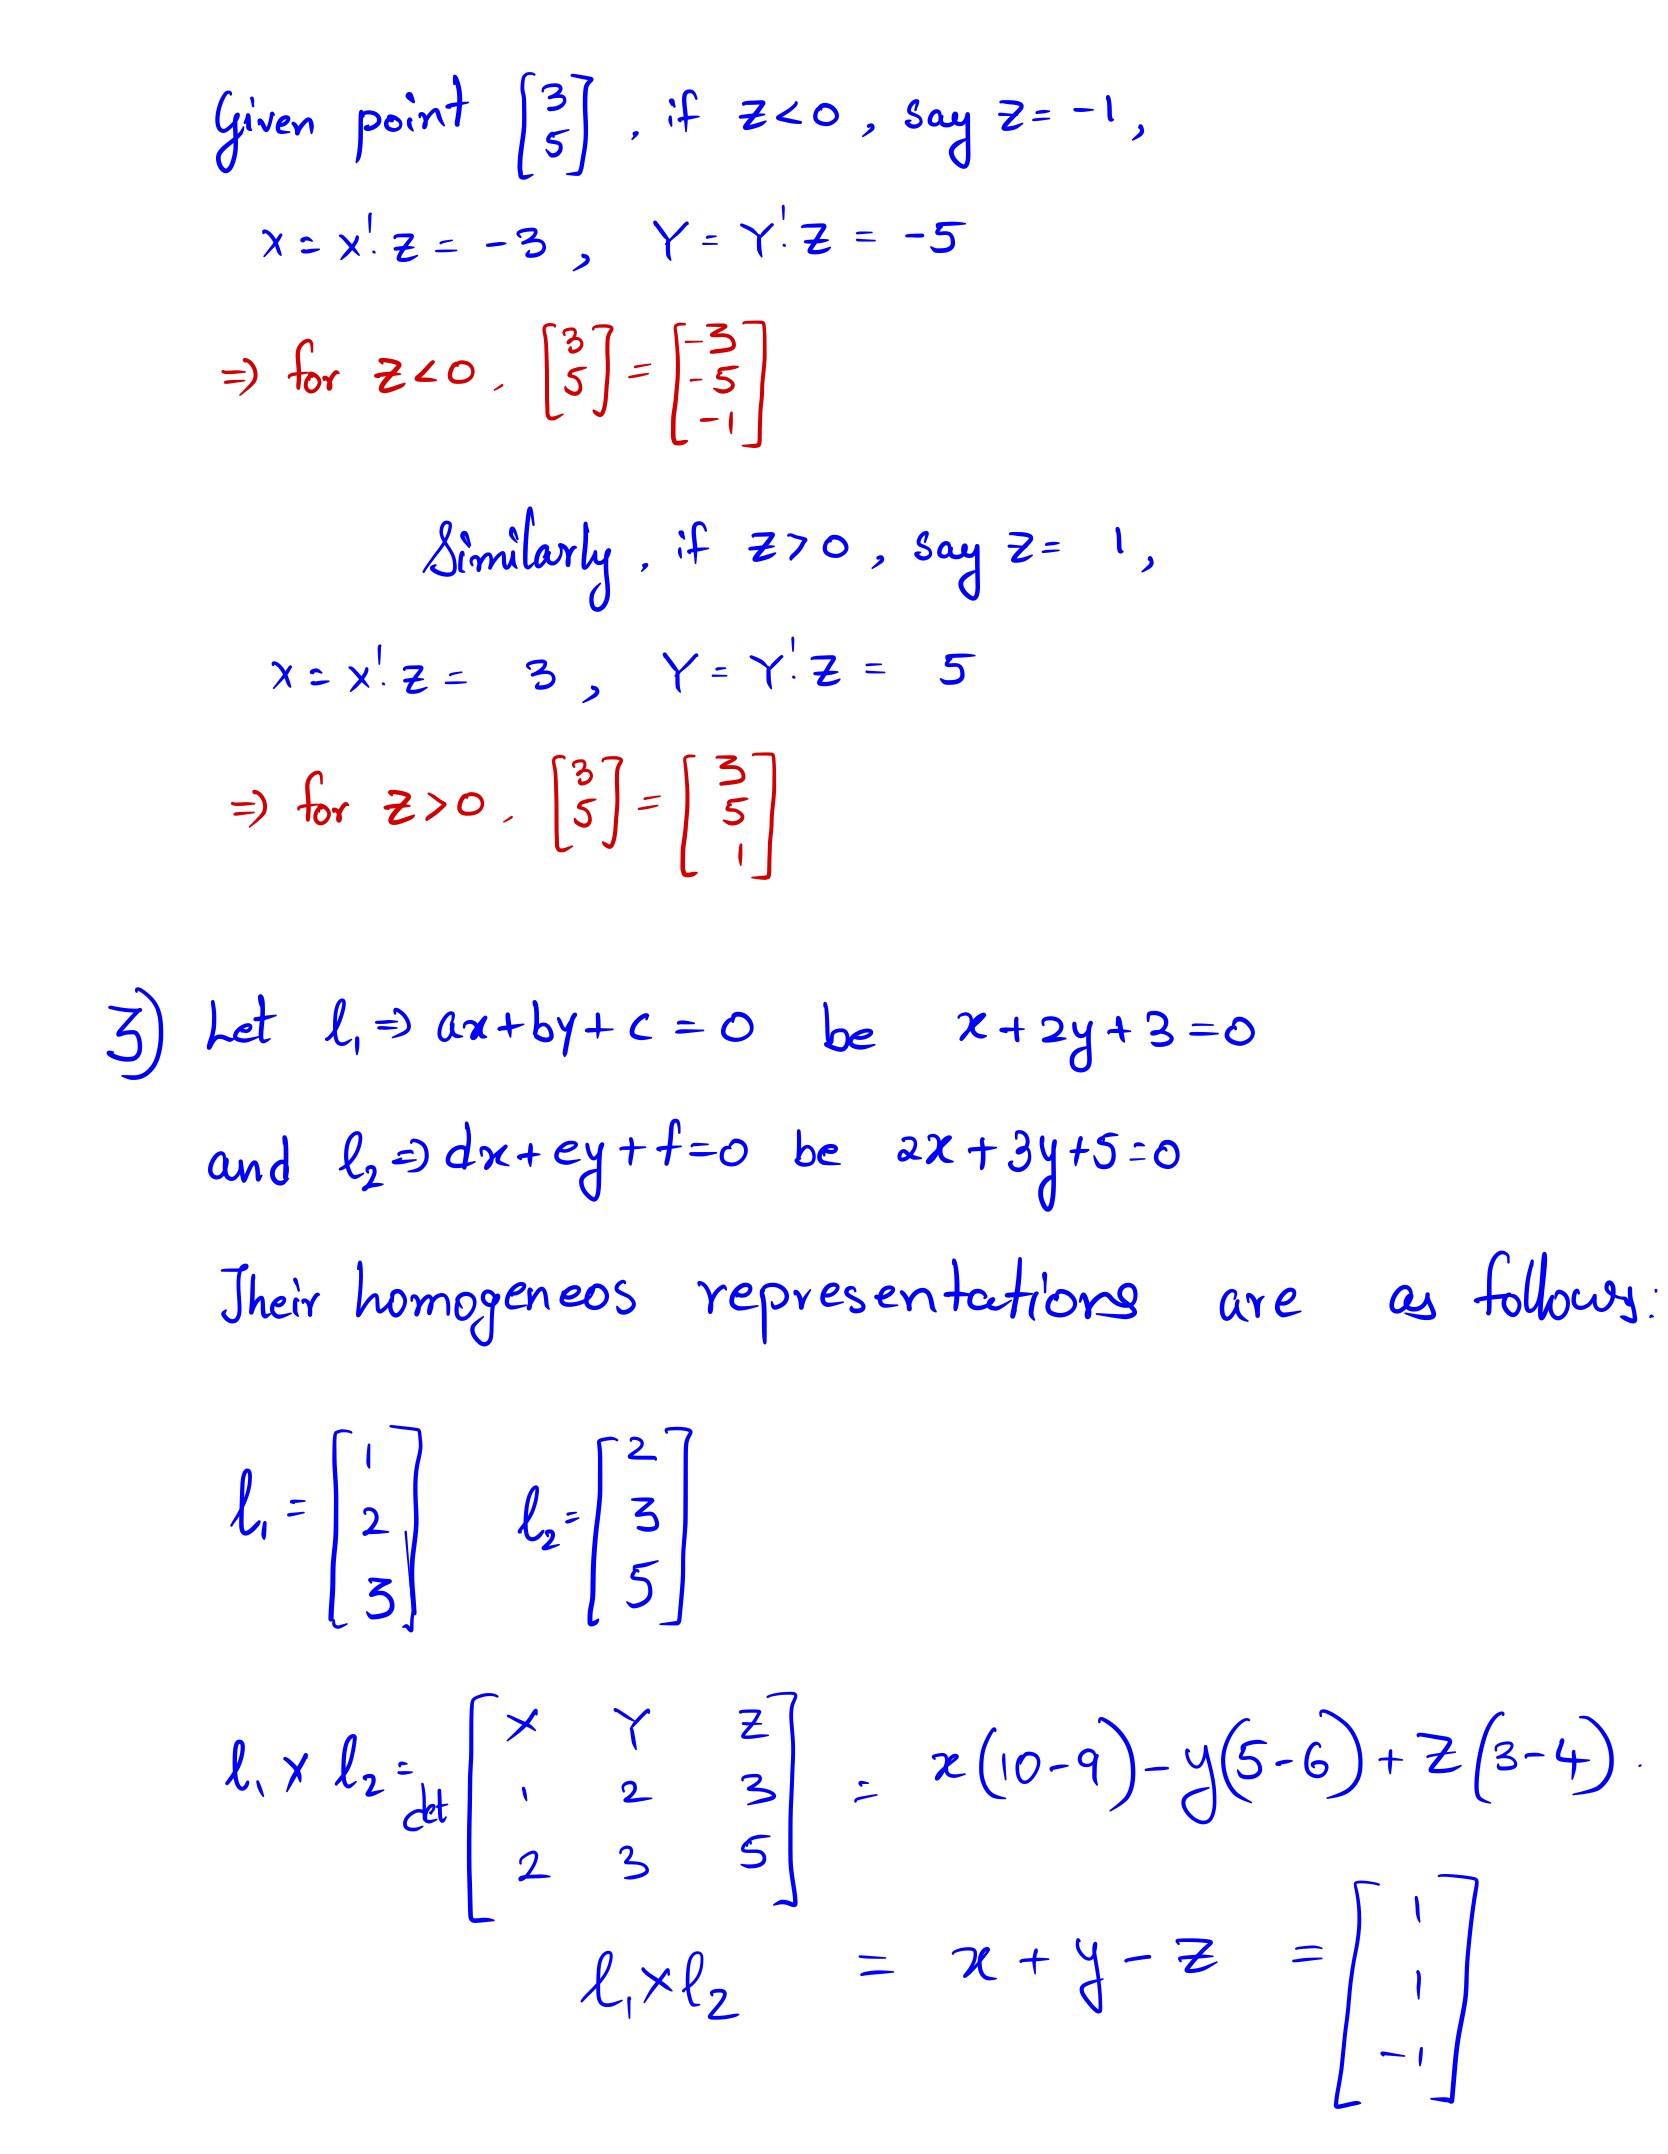 Given point [3 5], if z<0, say z= -1,
x = x'. z = -3, Y = Y'. z = -5
⇒ for z<0, [3 5] = [-3 -5 -1]
Similarly, if z>0, say z= 1,
x = x'. z = 3, Y = Y'. z = 5
⇒ for z>0, [3 5] = [3 5 1]
3) Let l₁ ⇒ ax+by+c = 0 be x+2y+3=0
and l₂ ⇒ dx+ey+f=0 be 2x+3y+5=0
Their homogeneos representations are as follows:
l₁ = [1 2 3] l₂ = [2 3 5]
l₁ x l₂ = det [X Y Z; 1 2 3; 2 3 5] = x(10-9)-y(5-6)+z(3-4).
l₁xl₂ = x+y-z = [1 1 -1]